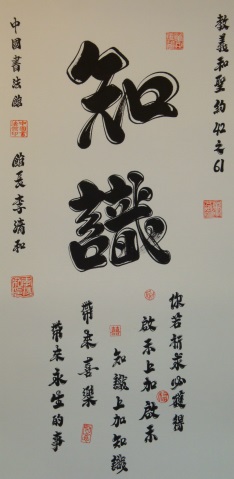 教義和聖約 61
知識
你若祈求必獲得
啟示上加啟示
知識上加知識
帶來喜樂
帶來永生的事
中國書法館
館長李清和